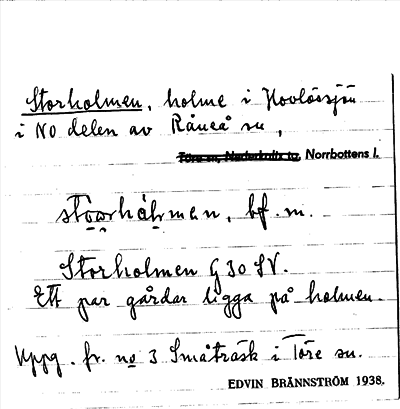 Storholmen, holme i Hovlössjön
i NO delen av Råneå sn,
Töre sn, Nederkalix tg, Norrbottens l.
stoərhålmen, bf. m.
Storholmen G 30 SV.
Ett par gårdar ligga på holmen.
Uppg. fr. no 3 Småträsk i Töre sn.
EDVIN BRÄNNSTRÖM 1938.